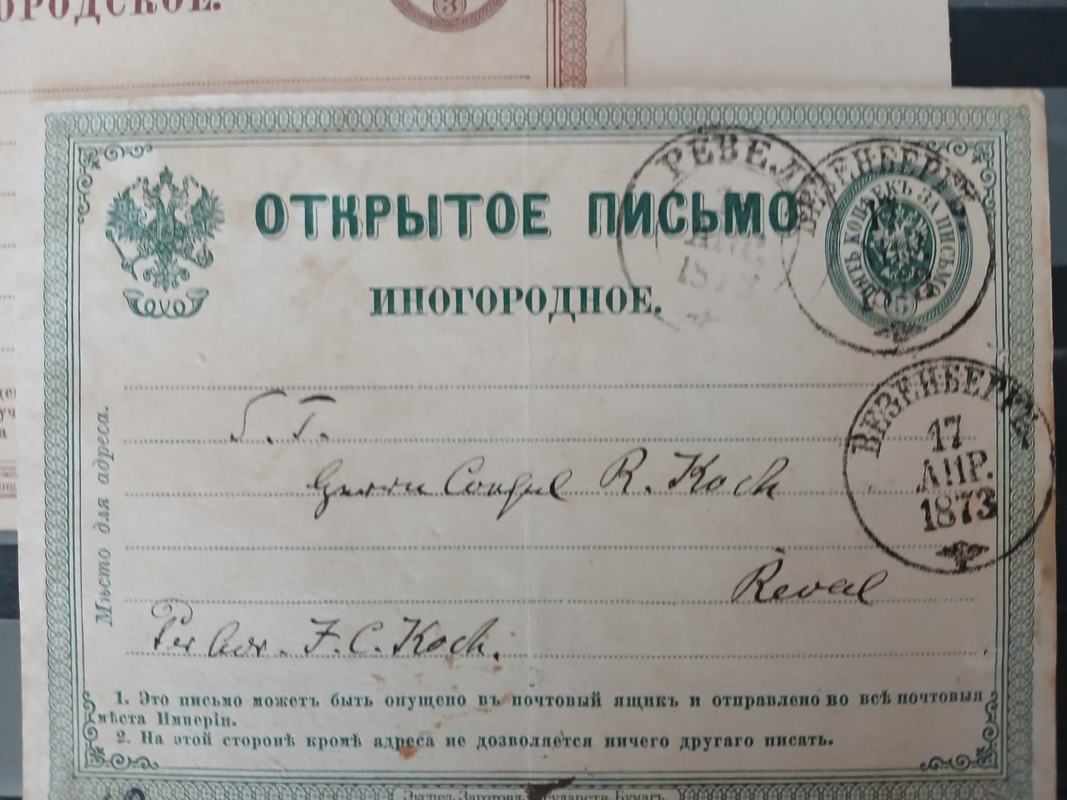 ОРОДСКОЕ.
3
ОТКРЫТОЕ ПИСЬМО
ИНОГОРОДНОЕ.
РЕВЕЛ
187
ВЕЗЕНБЕРГЪ
ПЯТЬ КОПѢЕКЪ ЗА ПИСЬМО
5
ВЕЗЕНБЕРГЪ
17
АПР.
1873
Мѣсто для адреса.
S. T.
Herrn Consul R. Koch
Reval
Per Adr. J. C. Koch.
1. Это письмо можетъ быть опущено въ почтовый ящикъ и отправлено во всѣ почтовыя
мѣста Имперіи.
2. На этой сторонѣ кромѣ адреса не дозволяется ничего другаго писать.
Экспед. Заготов. Государств. Бумагъ.